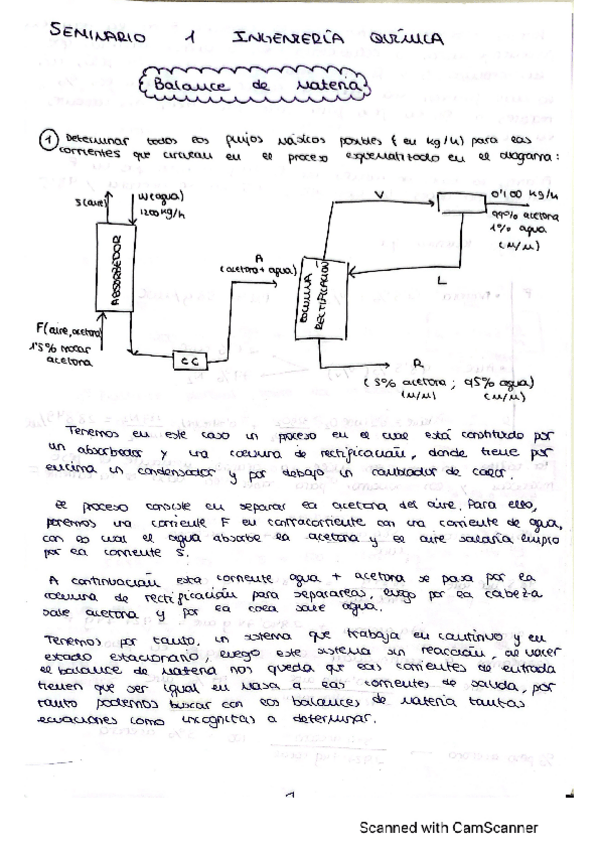 SEMINARIO 1 INGENIERÍA QUÍMICA
Balance de Materia
① Determinar todos los flujos másicos posibles (en kg/h) para las
corrientes que circulan en el proceso esquematizado en el diagrama:
S(aire)
W(agua)
1200 kg/h
ABSORBEDOR
F(aire, acetona)
1'5% molar
acetona
CC
A
(acetona + agua)
COLUMNA
RECTIFICACIÓN
V
L
D'100 kg/h
99% acetona
1% agua
(M/M)
R
(5% acetona ; 95% agua)
(M/M) (M/M)
Tenemos en este caso un proceso en el cual está constituido por
un absorbedor y una columna de rectificación, donde tiene por
encima un condensador y por debajo un cambiador de calor.
El proceso consiste en separar la acetona del aire. Para ello,
ponemos una corriente F en contracorriente con una corriente de agua,
con lo cual el agua absorbe la acetona y el aire saldría limpio
por la corriente S.
A continuación esta corriente agua + acetona se pasa por la
columna de rectificación para separarlas, luego por la cabeza
sale acetona y por la cola sale agua.
Tenemos por tanto, un sistema que trabaja en continuo y en
estado estacionario, luego este sistema sin reacción, al hacer
el balance de materia nos queda que las corrientes de entrada
tienen que ser igual en masa a las corrientes de salida, por
tanto podemos buscar con los balances de materia tantas
ecuaciones como incógnitas a determinar.
1
Scanned with CamScanner